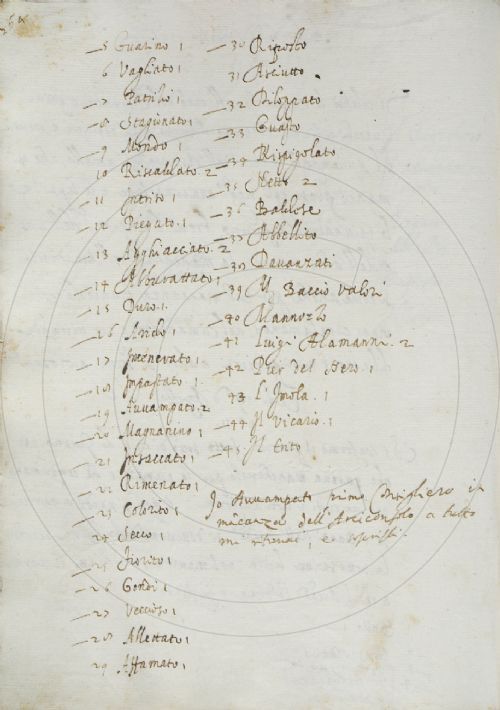 5 Guarino 1
6 Vagliato 1
7 Patrilio 1
8 Stagionato 1
9 Mondo 1
10 Riscaldato 2
11 Intriso 1
12 Pieguto 1
13 Agghiacciato 2
14 Abburattato 1
15 Duro 1
16 Arido 1
17 1
18 Impastato 1
19 Avvampato 2
20 Magnanino 1
21 Insaccato 1
22 Rimenato 1
23 Colorito 1
24 Secco 1
25 Fiorito 1
26 1
27 Veccioso 1
28 Allettato 1
29 Affamato 1
30 Riposto
31 Asciutto
32 Diloppato
33 Guasto
34 Rispigolato
35 Netto 2
36
37 Abbellito
Davanzati
39 Baccio Valori
40 Mannozlo
41 Luigi Alamanni 2
42 Pier del Nero 1
43 L'Imola 1
44 Il Vicario 1
45 Il Trito
Io Avvampato primo Consigliero in
dell'Arciconsolo a tutto